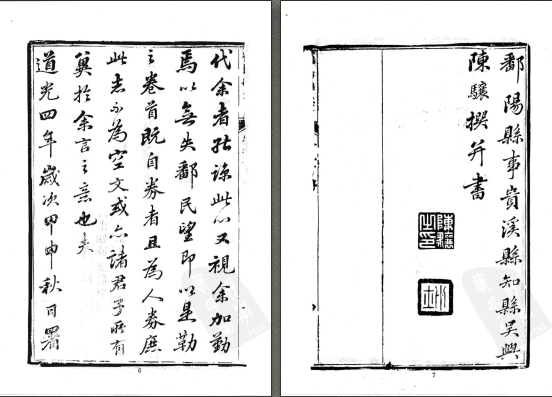 代余者能諒此心又視余加勤
焉以無失鄱民望即以是勒
之卷首既自券者且為人券庶
此志不為空文或亦諸君子所有
冀於余言之意也夫
道光四年歲次甲申秋日署
6
鄱陽縣事貴溪縣知縣吳興
陳驤撰并書
陳驤之印
7